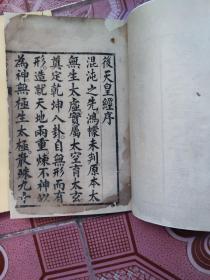 後天皇經序
混沌之先鴻濛未判原本太
無生太虛實屬太空育太玄
奠定乾坤八卦自無形而有
形造就天地兩重煉不神以
為神無極生太極散踈九